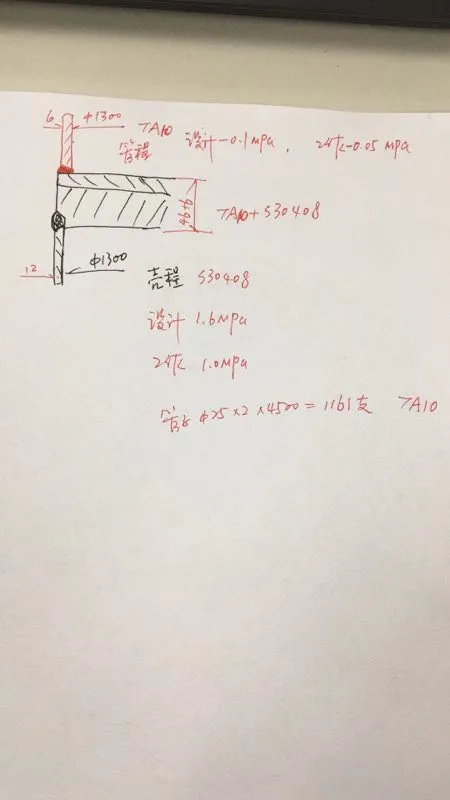 6 Φ1300 TA10
管程 设计-0.1MPa, 工作-0.05MPa
46+6 TA10+S30408
12 Φ1300 壳程 S30408
设计 1.6MPa
工作 1.0MPa
Φ25×2×4500=1161支 TA10